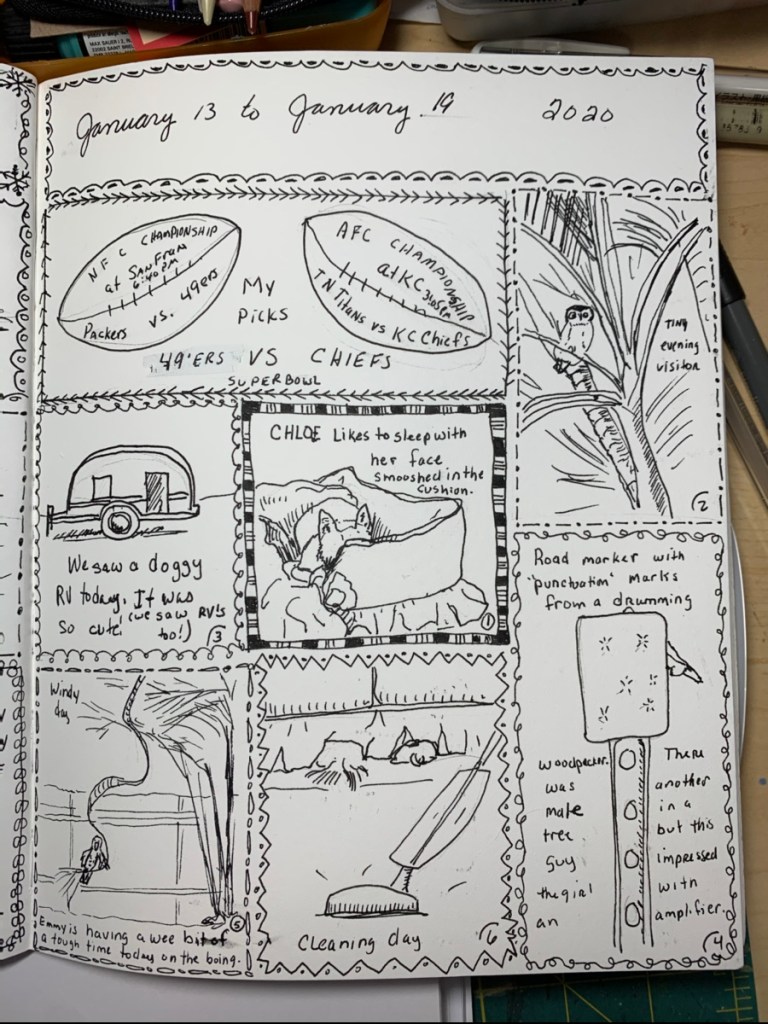 January 13 to January 19 2020
NFC CHAMPIONSHIP
at SAN FRAN
6:40 PM
Packers vs. 49ers
My
PICKS
AFC CHAMPIONSHIP
at KC
TN Titans vs KC Chiefs
49'ERS VS CHIEFS
SUPERBOWL
TINY
evening
visitor
2
CHLOE Likes to sleep with
her face
smooshed in the
cushion.
1
We saw a doggy
RV today. It was
so cute! (we saw RV'ls
too!)
3
Road marker with
"punctuation" marks
from a drumming
woodpecker. There
was another
male in a
tree but this
guy impressed
the girl with
an amplifier.
4
Windy
day
Emmy is having a wee bit of
a tough time today on the boing.
5
Cleaning day
6